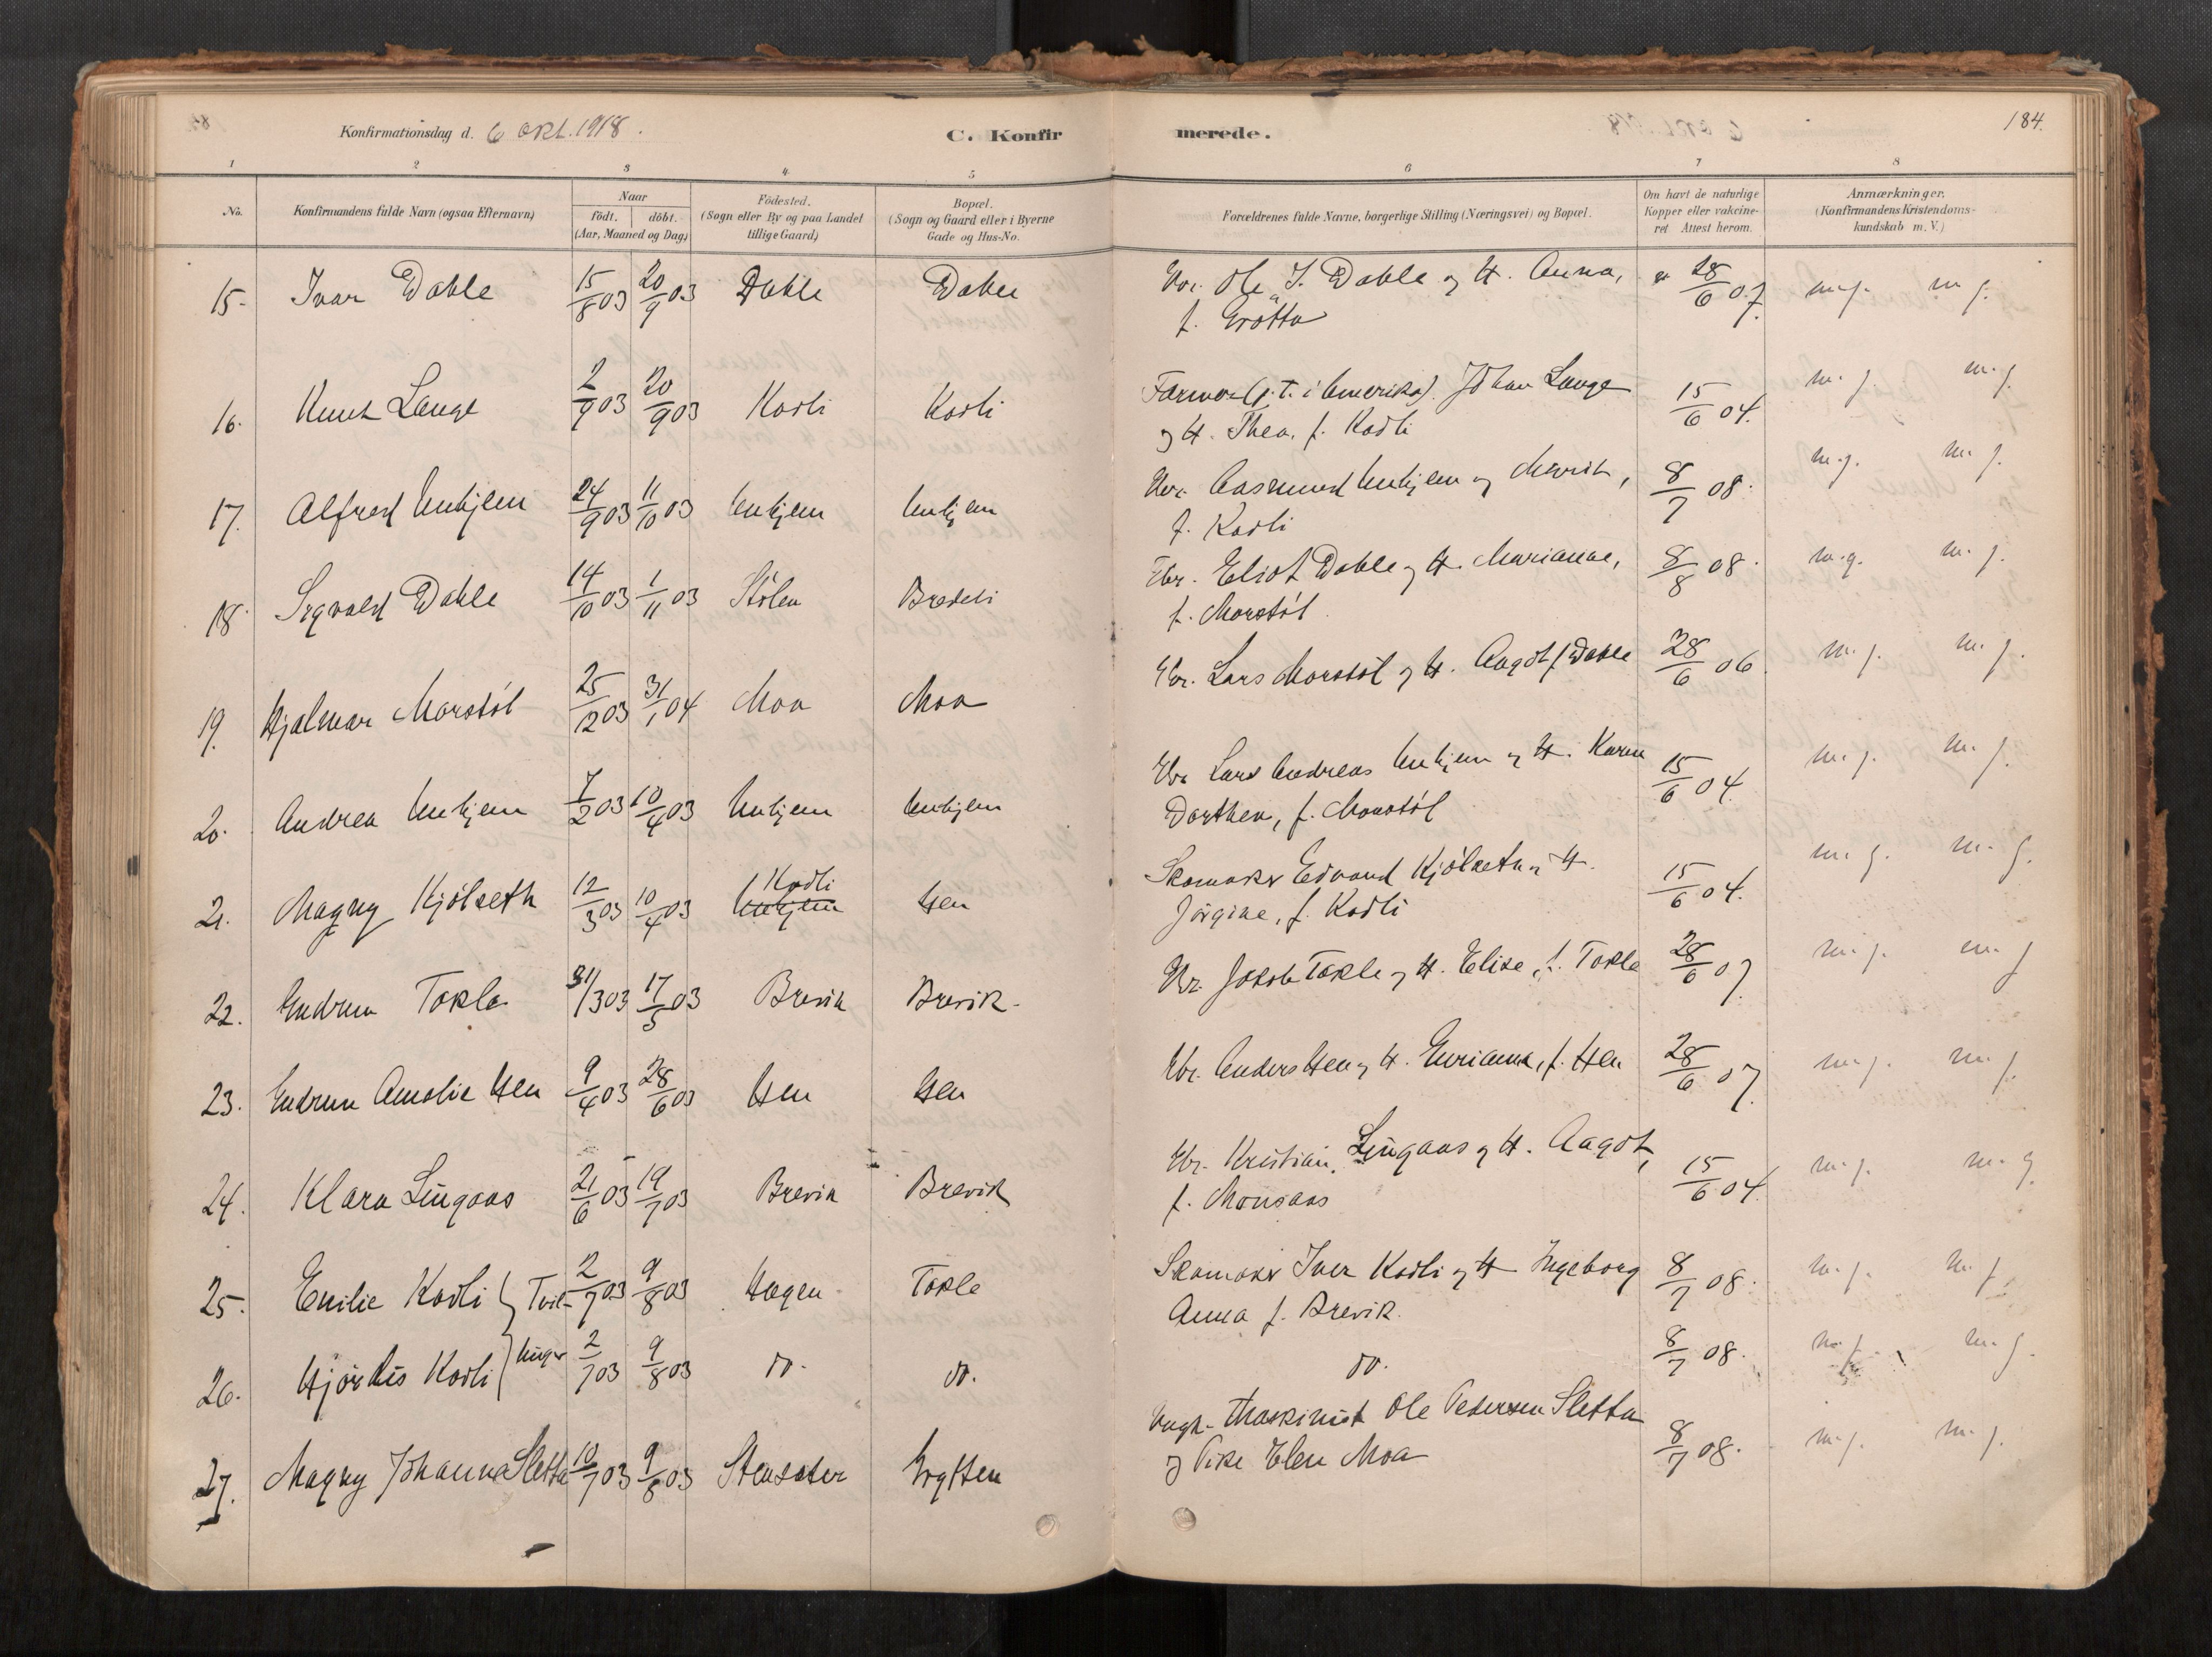 Konfirmationsdag d. 6 okt. 1918.
C. Konfirmerede.
184.
1 2 3 4 5 6 7 8
No.
Konfirmandens fulde Navn (ogsaa Efternavn)
Naar
födt. döbt.
(Aar, Maaned og Dag)
Födested.
(Sogn eller By og paa Landet
tillige Gaard)
Bopæl.
(Sogn og Gaard eller i Byerne
Gade og Hus-No.
Forældrenes fulde Navne, borgerlige Stilling (Næringsvei) og Bopæl.
Om havt de naturlige
Kopper eller vakcine-
ret Attest herom.
Anmærkninger.
(Konfirmandens Kristendoms-
kundskab m. V.)
15. Ivar Dahle 15/8 03 20/9 03 Dahle Dahle Gbr. Ole J. Dahle og H. Anna, 28/6 07. m.g. m.g.
f. Grøtta
16. Knut Lange 2/9 03 20/9 03 Kavli Kavli Farmer (p.t. i Amerika) Johan Lange 15/6 04. m.g. m.g.
og H. Thea, f. Kavli
17. Alfred Unhjem 24/9 03 11/10 03 Unhjem Unhjem Gbr. Aasmund Unhjem og Marit, 8/7 08. m.g. m.g.
f. Kavli
18. Sigvald Dahle 14/10 03 1/11 03 Stölen Bredeli Gbr. Eliot Dahle og H. Marianne, 8/8 08. m.g. m.g.
f. Marstöl
19. Hjalmar Marstöl 25/12 03 31/1 04 Moa Moa Gbr. Lars Marstöl og H. Aagot f. Dahle 28/6 06. m.g. m.g.
20. Andrea Unhjem 7/2 03 10/4 03 Unhjem Unhjem Gbr. Lars Andreas Unhjem og H. Karen 15/6 04. m.g. m.g.
Dorthea, f. Marstöl
21. Magny Kjölseth 12/3 03 10/4 03 Kavli Unhjem Hen Skomaker Edvard Kjölseth og H. 15/6 04. m.g. m.g.
Jörgine, f. Kavli
22. Gudrun Tokle 31/3 03 17/5 03 Brevik Brevik. Gbr. Jakob Tokle og H. Elise, f. Tokle 28/6 07. m.g. m.g.
23. Gudrun Amalie Hen 9/4 03 28/6 03 Hen Hen Gbr. Anders Hen og H. Gurianna, f. Hen 28/6 07. m.g. m.g.
24. Klara Lingaas 21/6 03 19/7 03 Brevik Brevik Gbr. Kristian Lingaas og H. Aagot, 15/6 04. m.g. m.g.
f. Monsaas
25. Emilie Kavli } Tvil- 2/7 03 9/8 03 Hagen Tokle Skomaker Iver Kavli og H. Ingeborg 8/7 08. m.g. m.g.
Anna f. Brevik.
26. Hjördis Kavli } linger 2/7 03 9/8 03 do. do. do. 8/7 08. m.g. m.g.
27. Magny Johanna Sletta 10/7 03 9/8 03 Stensæter Grytten Ungk. Maskinist Ole Pedersen Sletta 8/7 08. m.g. m.g.
og Pike Elen Moa